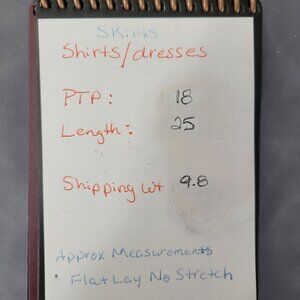 Skirts
Shirts/dresses
PTP: 18
Length: 25
Shipping wt 9.8
Approx Measurements
Flat Lay No Stretch